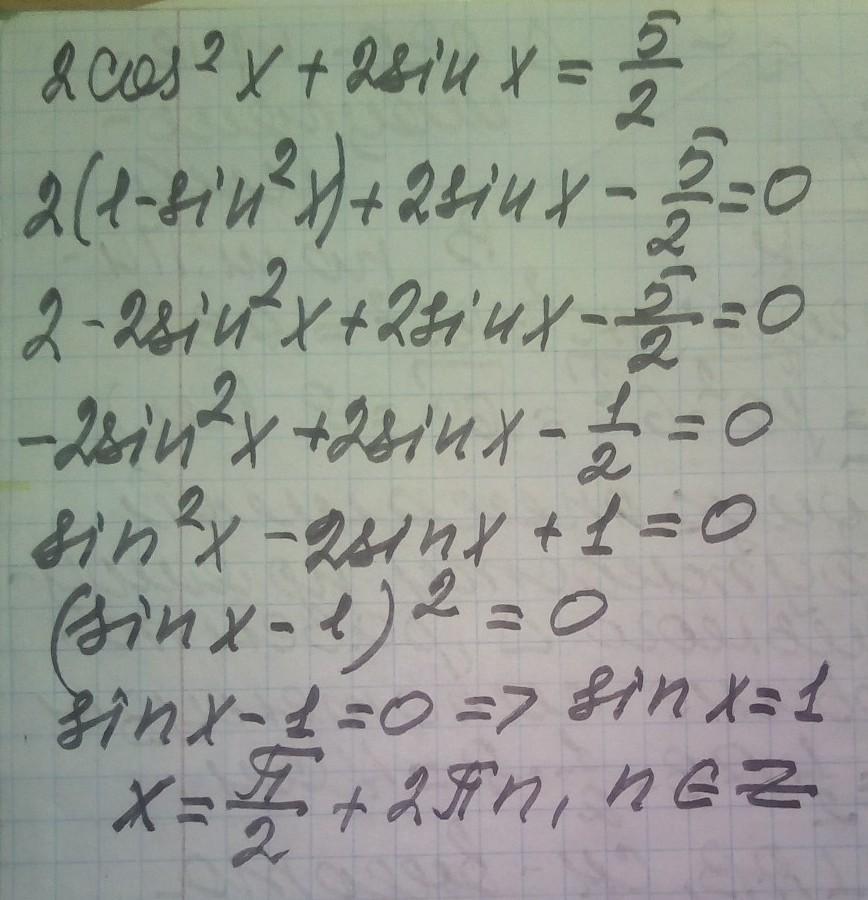 2cos²x + 2sinx = 5/2
2(1-sin²x) + 2sinx - 5/2 = 0
2 - 2sin²x + 2sinx - 5/2 = 0
-2sin²x + 2sinx - 1/2 = 0
sin²x - 2sinx + 1 = 0
(sinx - 1)² = 0
sinx - 1 = 0 => sinx = 1
x = π/2 + 2πn, n ∈ Z